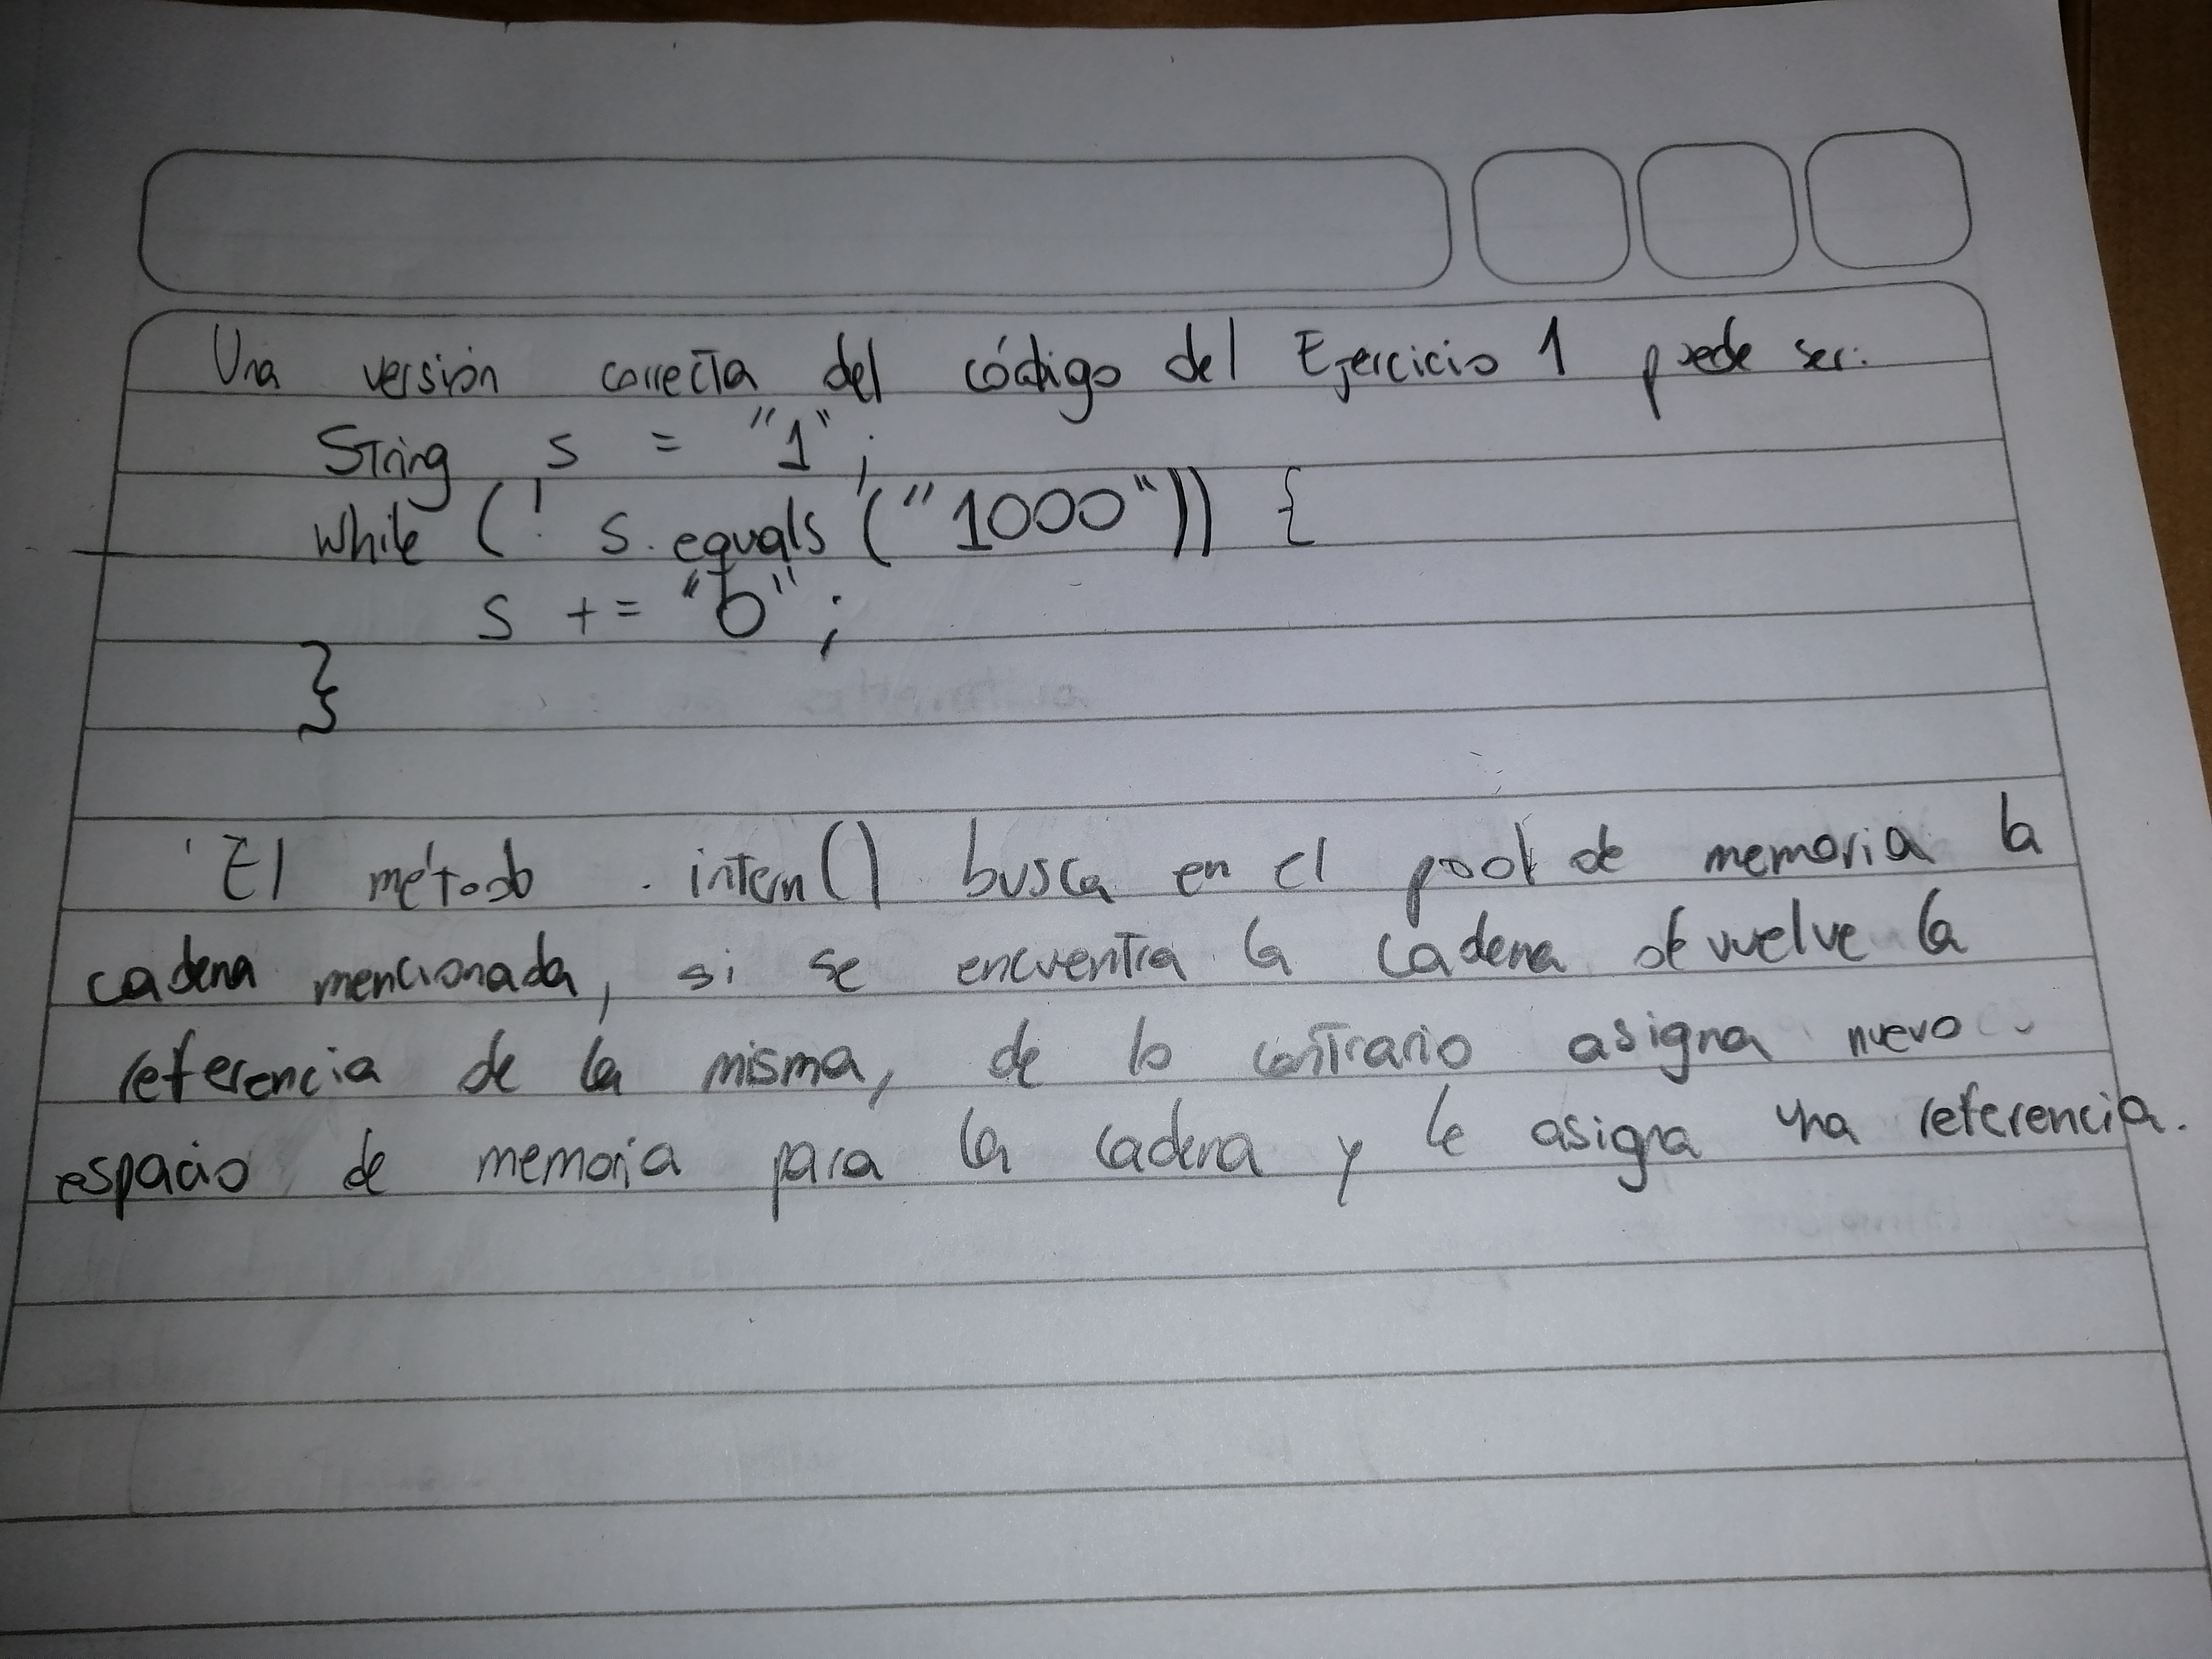 Una versión correcta del código del Ejercicio 1 puede ser:
String s = "1";
while (! s.equals ("1000")) {
s += "b";
}
El método .intern() busca en el pool de memoria la
cadena mencionada, si se encuentra la cadena devuelve la
referencia de la misma, de lo contrario asigna nuevo
espacio de memoria para la cadena y le asigna una referencia.